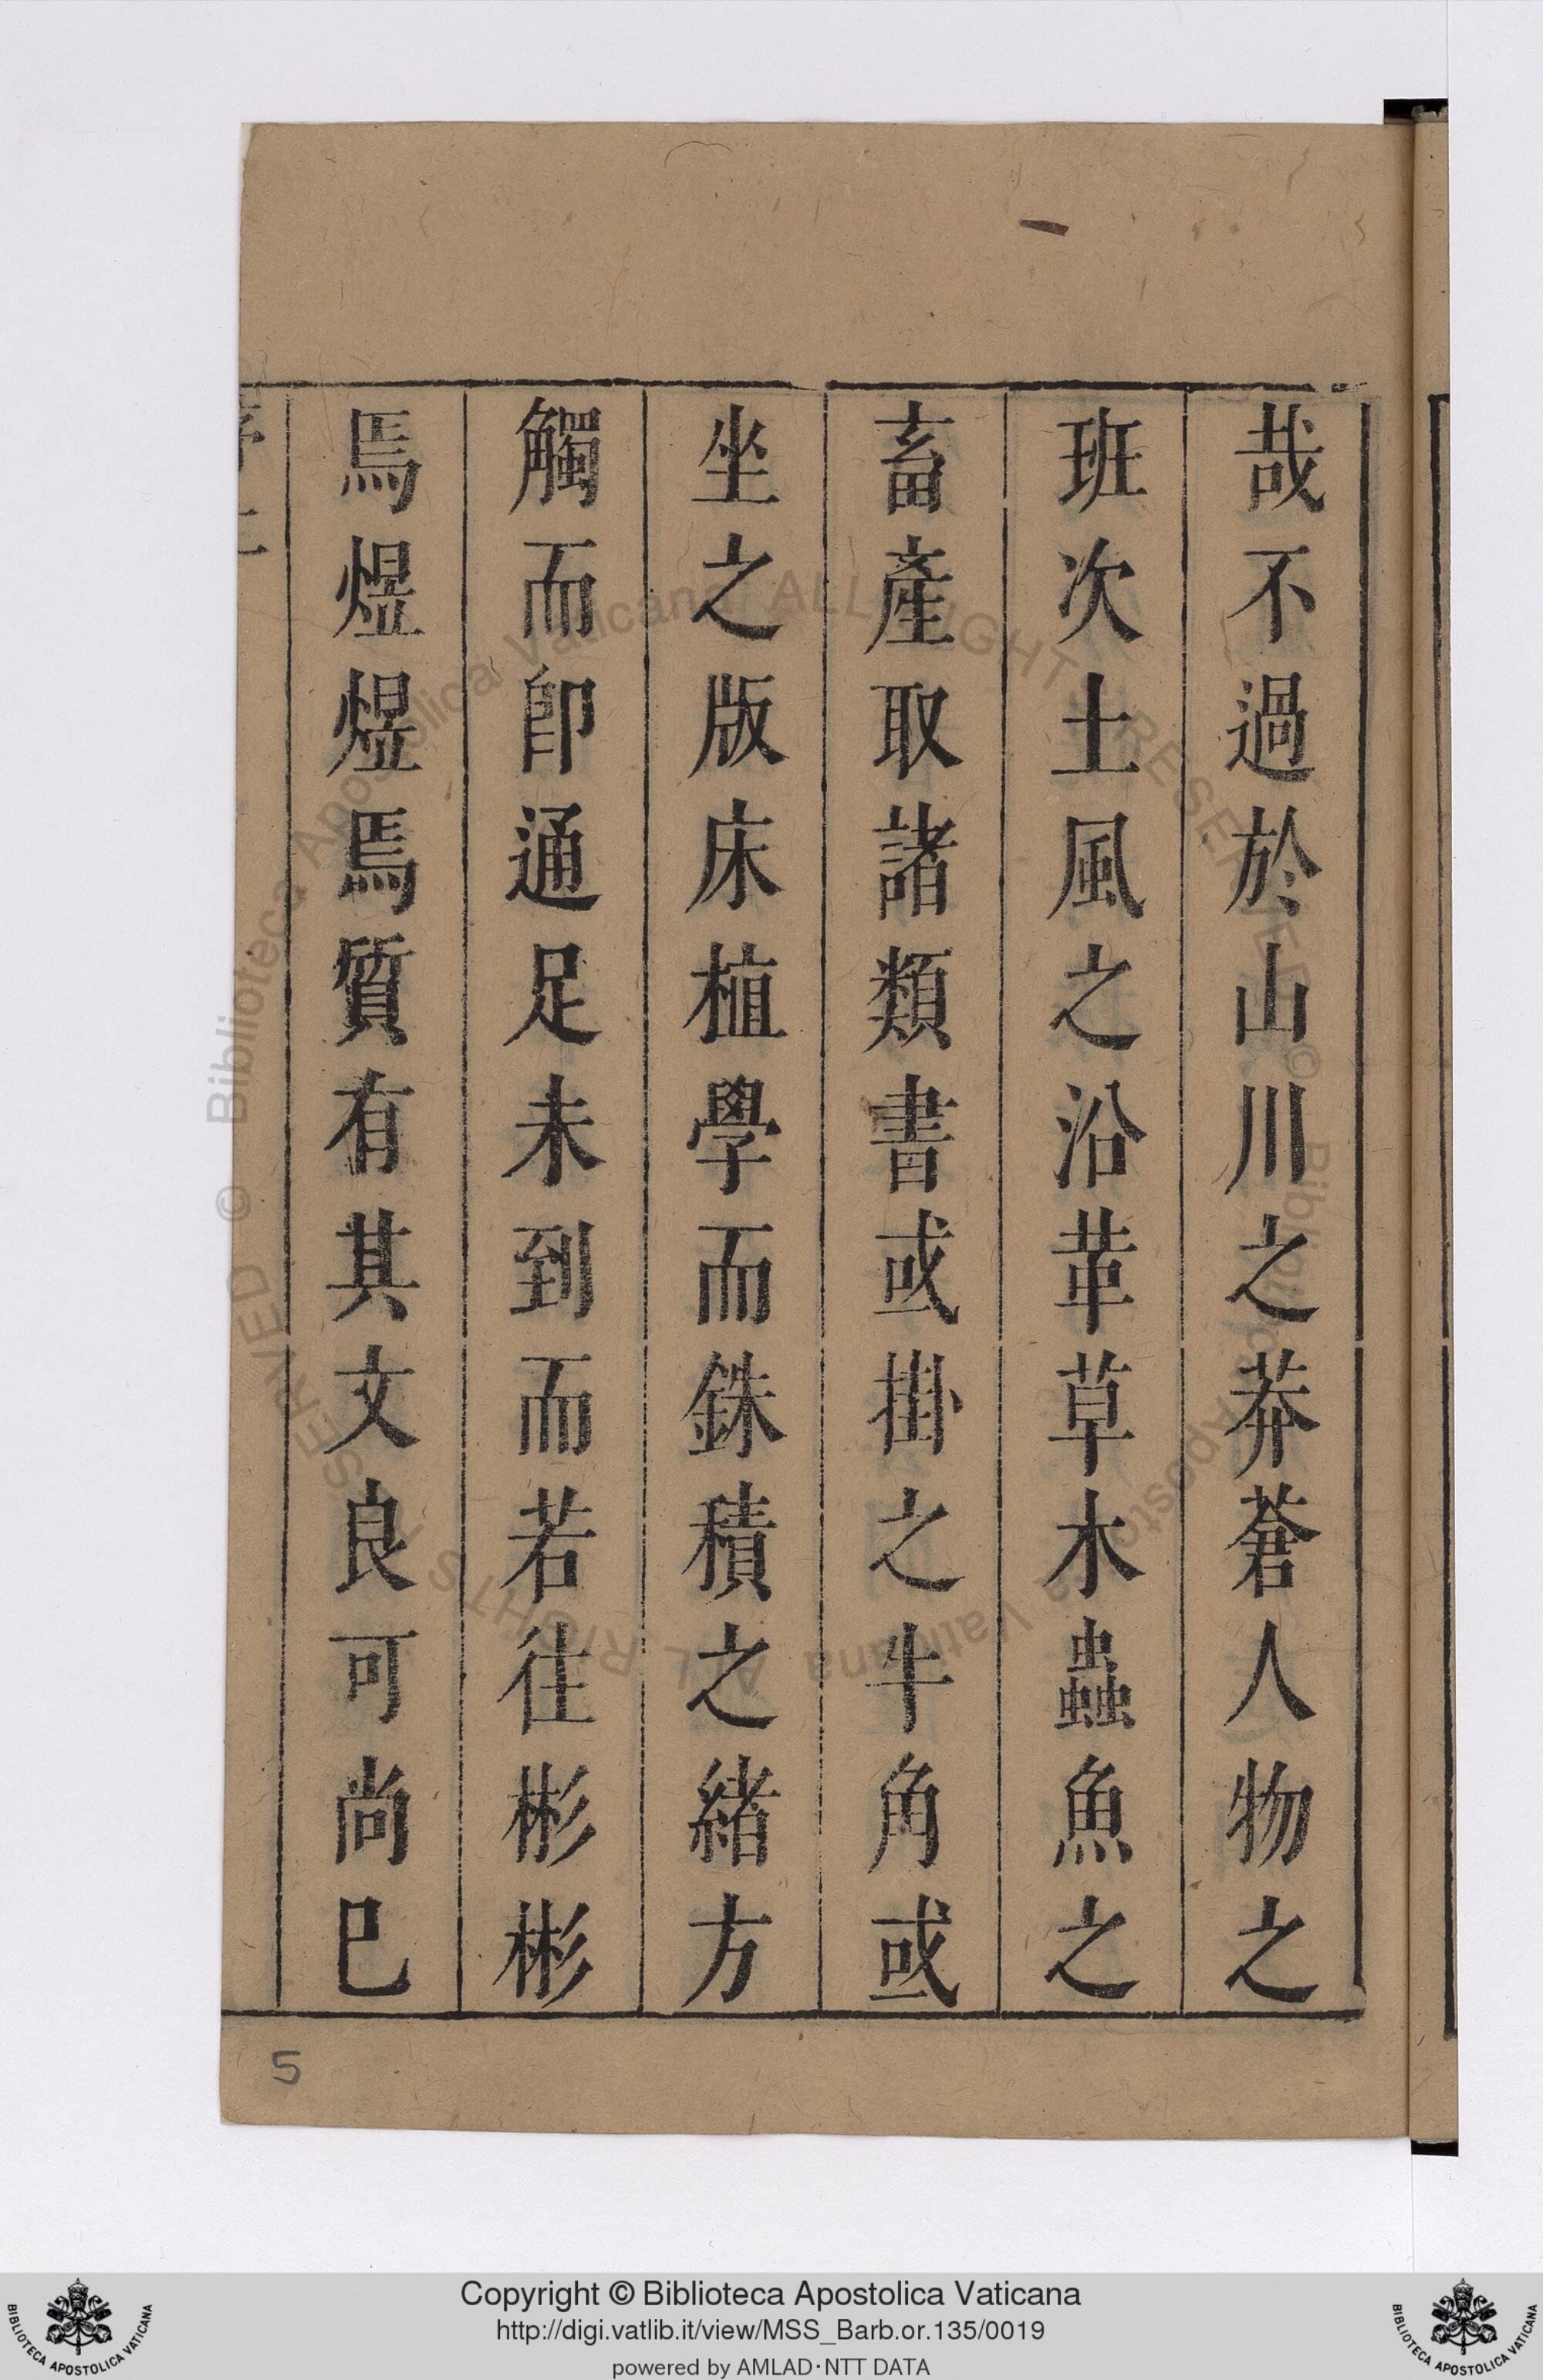 哉不過於山川之莽蒼人物之
班次土風之沿革草木蟲魚之
畜產取諸類書或掛之牛角或
坐之版床植學而銖積之緒方
觸而卽通足未到而若往彬彬
焉煜煜焉質有其文良可尚已
序二
5
Biblioteca Apostolica Vaticana ALL RIGHTS RESERVED ©
Biblioteca Apostolica Vaticana ALL RIGHTS RESERVED ©
Copyright © Biblioteca Apostolica Vaticana
http://digi.vatlib.it/view/MSS_Barb.or.135/0019
powered by AMLAD·NTT DATA
BIBLIOTECA APOSTOLICA VATICANA
BIBLIOTECA APOSTOLICA VATICANA